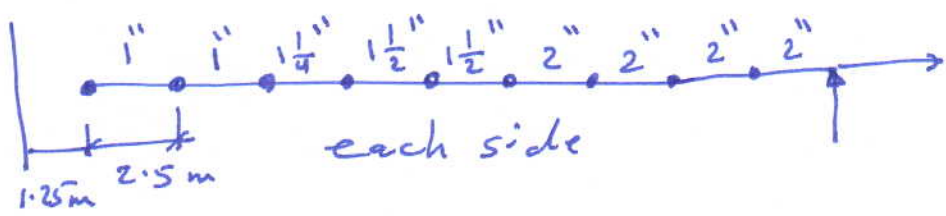 1" 1" 1 1/4" 1 1/2" 1 1/2" 2" 2" 2" 2"
each side
2.5 m
1.25m